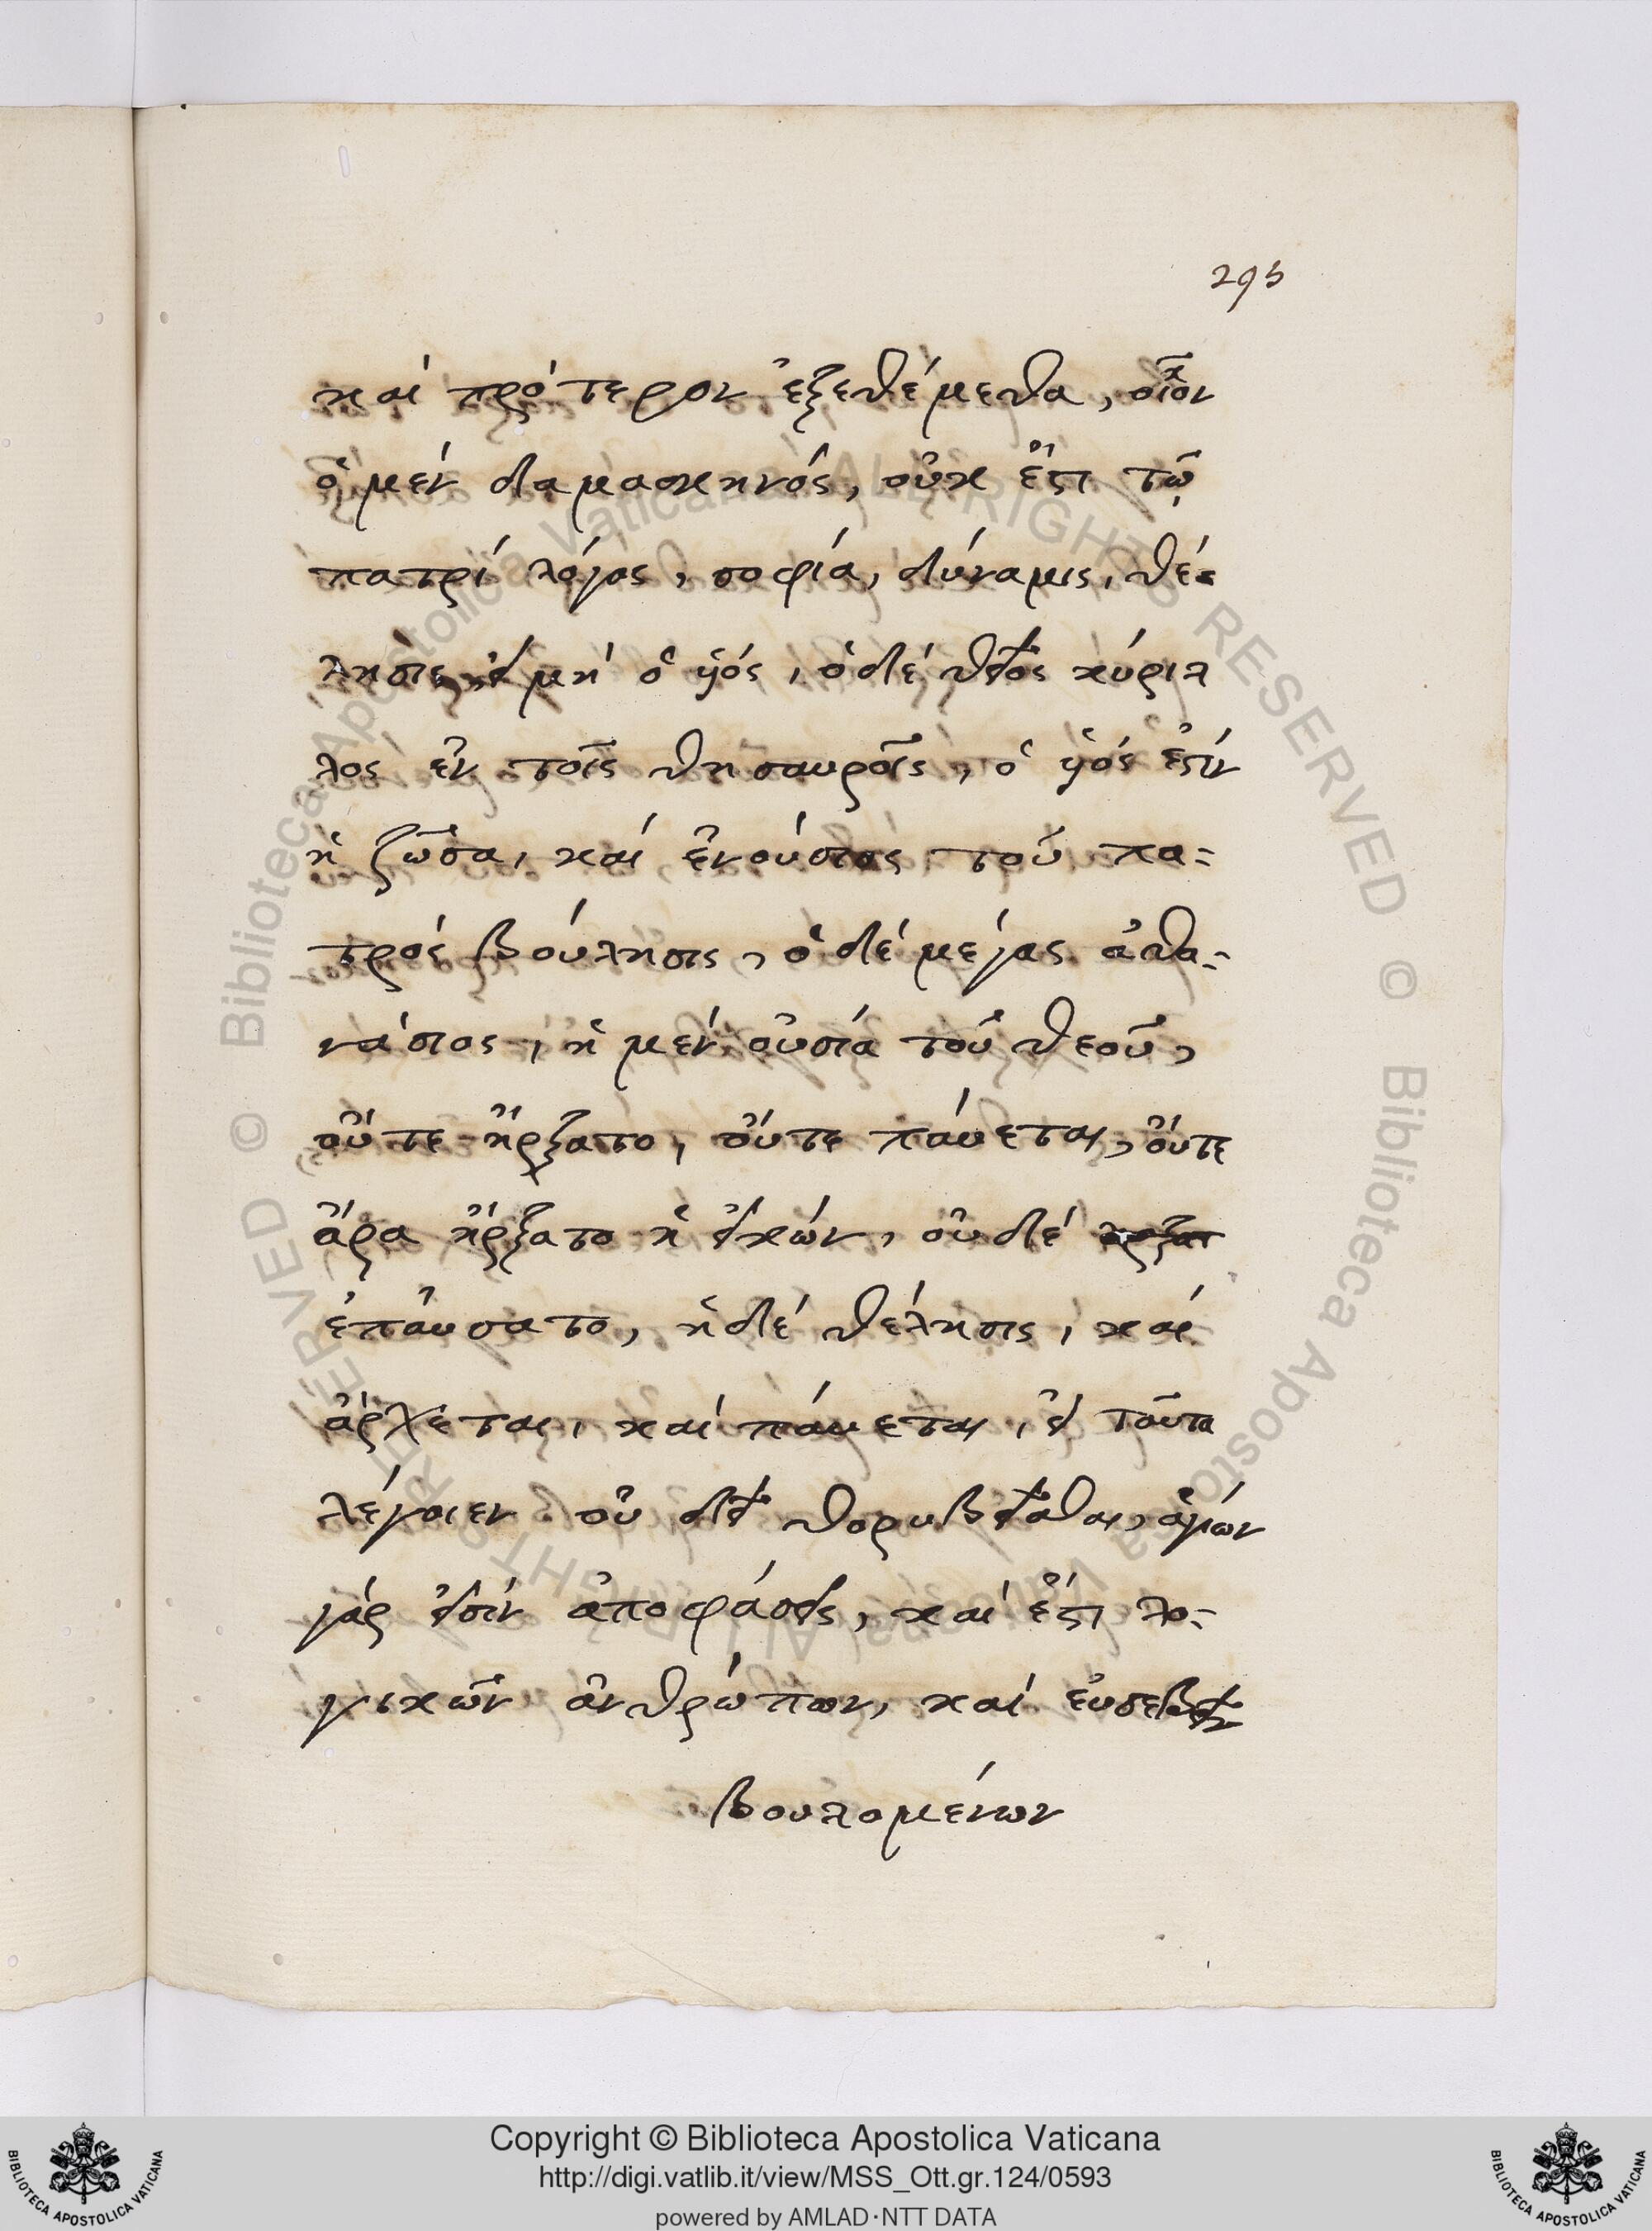 295
καί πρότερον ἐξεθέμεθα, οἷον
ὁ μέν δαμασκηνός, οὐκ ἔστι τῷ
πατρί λόγος, σοφία, δύναμις, θέ-
λησις, εἰ μή ὁ υἱός, ὁ δέ θεῖος κύριλ
λος ἐν τοῖς θησαυροῖς, ὁ υἱός ἐστίν
ἡ ζῶσα, καί ἐνούσιος τοῦ πα-
τρός βούλησις, ὁ δέ μέγας ἀθα-
νάσιος, ἡ μέν οὐσία τοῦ θεοῦ,
οὔτε ἤρξατο, οὔτε παύεται, οὔτε
ἄρα ἤρξατο ἡ εἰκών, οὐδέ
ἐπαύσατο, ἡ δέ θέλησις, καί
ἄρχεται, καί παύεται, εἰ ταῦτα
λέγοιεν οὐ δεῖ θορυβεῖσθαι, ἁγίων
γάρ εἰσίν ἀποφάσεις, καί ἔστι λο-
γικῶν ἀνθρώπων, καί εὐσεβεῖν
βουλομένων
Biblioteca Apostolica Vaticana ALL RIGHTS RESERVED ©
Biblioteca Apostolica Vaticana ALL RIGHTS RESERVED ©
Copyright © Biblioteca Apostolica Vaticana
http://digi.vatlib.it/view/MSS_Ott.gr.124/0593
powered by AMLAD·NTT DATA
BIBLIOTECA APOSTOLICA VATICANA
BIBLIOTECA APOSTOLICA VATICANA